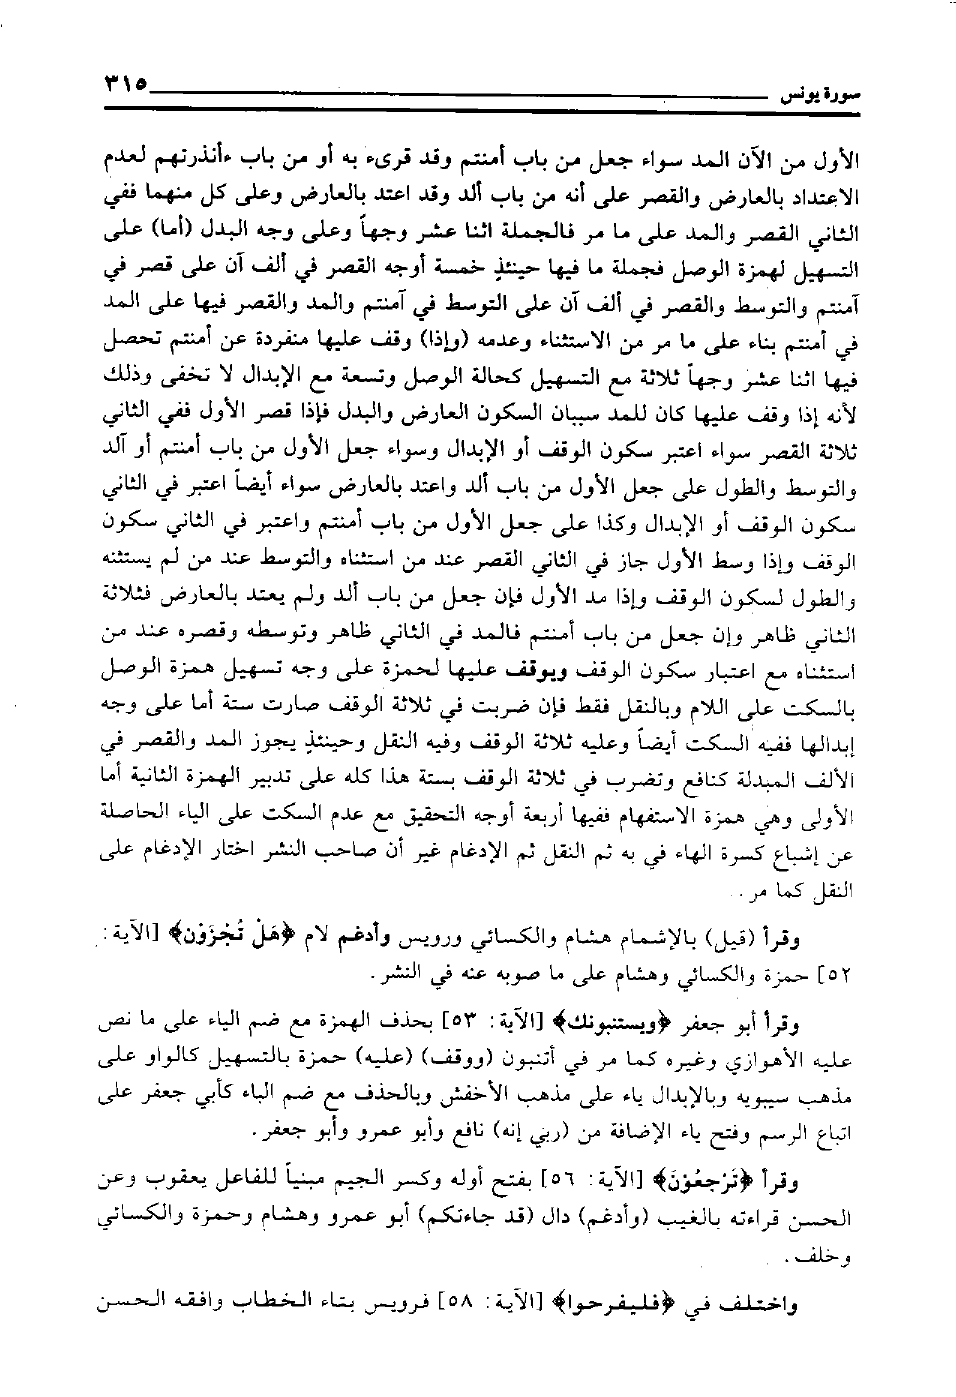 سورة يونس ٣١٥
الأول من الآن المد سواء جعل من باب أمنتم وقد قرىء به أو من باب ءأنذرتهم لعدم
الاعتداد بالعارض والقصر على أنه من باب ألد وقد اعتد بالعارض وعلى كل منهما ففي
الثاني القصر والمد على ما مر فالجملة اثنا عشر وجهاً وعلى وجه البدل (أما) على
التسهيل لهمزة الوصل فجملة ما فيها حينئذٍ خمسة أوجه القصر في ألف آن على قصر في
آمنتم والتوسط والقصر في ألف آن على التوسط في آمنتم والمد والقصر فيها على المد
في أمنتم بناء على ما مر من الاستثناء وعدمه (وإذا) وقف عليها منفردة عن أمنتم تحصل
فيها اثنا عشر وجهاً ثلاثة مع التسهيل كحالة الوصل وتسعة مع الإبدال لا تخفى وذلك
لأنه إذا وقف عليها كان للمد سببان السكون العارض والبدل فإذا قصر الأول ففي الثاني
ثلاثة القصر سواء اعتبر سكون الوقف أو الإبدال وسواء جعل الأول من باب أمنتم أو آلد
والتوسط والطول على جعل الأول من باب ألد واعتد بالعارض سواء أيضاً اعتبر في الثاني
سكون الوقف أو الإبدال وكذا على جعل الأول من باب أمنتم واعتبر في الثاني سكون
الوقف وإذا وسط الأول جاز في الثاني القصر عند من استثناه والتوسط عند من لم يستثنه
والطول لسكون الوقف وإذا مد الأول فإن جعل من باب ألد ولم يعتد بالعارض فثلاثة
الثاني ظاهر وإن جعل من باب أمنتم فالمد في الثاني ظاهر وتوسطه وقصره عند من
استثناه مع اعتبار سكون الوقف ويوقف عليها لحمزة على وجه تسهيل همزة الوصل
بالسكت على اللام وبالنقل فقط فإن ضربت في ثلاثة الوقف صارت ستة أما على وجه
إبدالها ففيه السكت أيضاً وعليه ثلاثة الوقف وفيه النقل وحينئذٍ يجوز المد والقصر في
الألف المبدلة كنافع وتضرب في ثلاثة الوقف بستة هذا كله على تدبير الهمزة الثانية أما
الأولى وهي همزة الاستفهام ففيها أربعة أوجه التحقيق مع عدم السكت على الياء الحاصلة
عن إشباع كسرة الهاء في به ثم النقل ثم الإدغام غير أن صاحب النشر اختار الإدغام على
النقل كما مر.
وقرأ (قيل) بالإشمام هشام والكسائي ورويس وأدغم لام ﴿هَلْ تُجْزَوْن﴾ [الآية:
٥٢] حمزة والكسائي وهشام على ما صوبه عنه في النشر.
وقرأ أبو جعفر ﴿ويستنبونك﴾ [الآية: ٥٣] بحذف الهمزة مع ضم الياء على ما نص
عليه الأهوازي وغيره كما مر في أتنبون (ووقف) (عليه) حمزة بالتسهيل كالواو على
مذهب سيبويه وبالإبدال ياء على مذهب الأخفش وبالحذف مع ضم الباء كأبي جعفر على
اتباع الرسم وفتح ياء الإضافة من (ربي إنه) نافع وأبو عمرو وأبو جعفر.
وقرأ ﴿تَرْجِعُوْنَ﴾ [الآية: ٥٦] بفتح أوله وكسر الجيم مبنياً للفاعل يعقوب وعن
الحسن قراءته بالغيب (وأدغم) دال (قد جاءتكم) أبو عمرو وهشام وحمزة والكسائي
وخلف.
واختلف في ﴿فليفرحوا﴾ [الآية: ٥٨] فرويس بتاء الخطاب وافقه الحسن